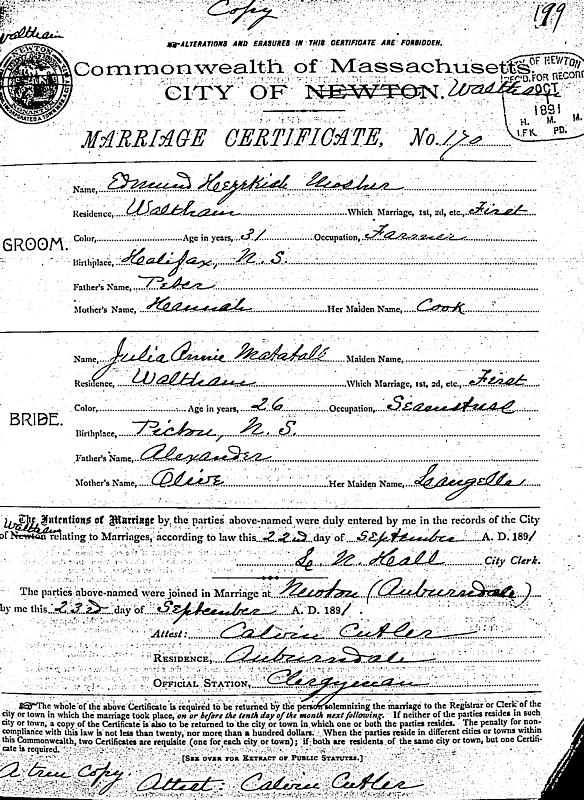 Copy
199
Waltham
ALTERATIONS AND ERASURES IN THIS CERTIFICATE ARE FORBIDDEN.
Commonwealth of Massachusetts.
CITY OF NEWTON. Waltham
CITY OF NEWTON
REC'D. FOR RECORD
OCT
1
1891
H. M. M.
I.F.K. PD.
MARRIAGE CERTIFICATE, No. 170
GROOM.
Name, Edmund Hezekiah Mosher
Residence, Waltham Which Marriage, 1st, 2d, etc., First
Color, Age in years, 31 Occupation, Farmer
Birthplace, Halifax, N.S.
Father's Name, Peter
Mother's Name, Hannah Her Maiden Name, Cook
BRIDE.
Name, Julia Annie Matatall Maiden Name,
Residence, Waltham Which Marriage, 1st, 2d, etc., First
Color, Age in years, 26 Occupation, Seamstress
Birthplace, Pictou, N.S.
Father's Name, Alexander
Mother's Name, Olive Her Maiden Name, Langelle
The Intentions of Marriage by the parties above-named were duly entered by me in the records of the City
Waltham
of Newton relating to Marriages, according to law this 22nd day of September A. D. 1891
L. N. Hall City Clerk.
The parties above-named were joined in Marriage at Newton (Auburndale)
by me this 23rd day of September A. D. 1891.
Attest: Calvin Cutler
RESIDENCE, Auburndale
OFFICIAL STATION, Clergyman
The whole of the above Certificate is required to be returned by the person solemnizing the marriage to the Registrar or Clerk of the
city or town in which the marriage took place, on or before the tenth day of the month next following. If neither of the parties resides in such
city or town, a copy of the Certificate is also to be returned to the city or town in which one or both the parties resides. The penalty for non-
compliance with this law is not less than twenty, nor more than a hundred dollars. When the parties reside in different cities or towns within
this Commonwealth, two Certificates are requisite (one for each city or town); if both are residents of the same city or town, but one Certifi-
cate is required.
[SEE OVER FOR EXTRACT OF PUBLIC STATUTES.]
A true copy. Attest: Calvin Cutler